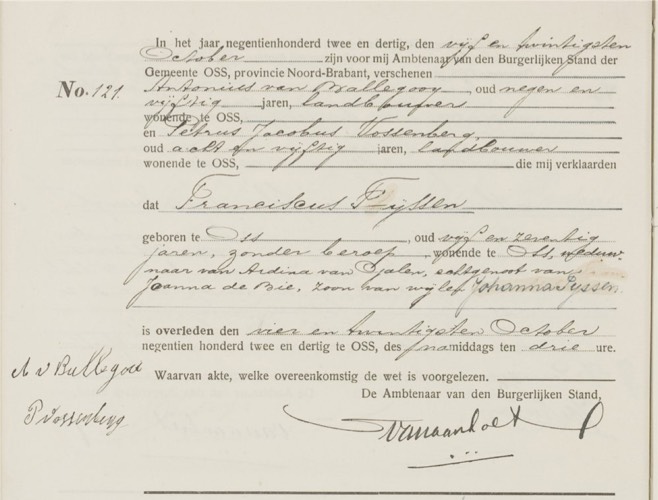 In het jaar negentienhonderd twee en dertig, den vijf en twintigsten
October zijn voor mij Ambtenaar van den Burgerlijken Stand der
Gemeente OSS, provincie Noord-Brabant, verschenen
No. 121. Antonius van Ballegooy, oud negen en
vijftig jaren, landbouwer
wonende te OSS,
en Petrus Jacobus Vossenberg,
oud acht en vijftig jaren, landbouwer
wonende te OSS, die mij verklaarden
dat Franciscus Tijssen
geboren te Oss, oud vijf en zeventig
jaren, zonder beroep, wonende te Oss, weduw-
naar van Ardina van Dalen, echtgenoot van
Joanna de Bie, zoon van wijlen Johanna Tyssen
is overleden den vier en twintigsten October
negentien honderd twee en dertig te OSS, des namiddags ten drie ure.
Waarvan akte, welke overeenkomstig de wet is voorgelezen.
De Ambtenaar van den Burgerlijken Stand,
A v Ballegoo
P Vossenberg